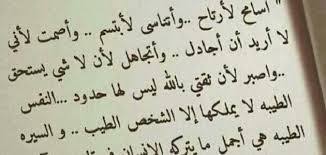 " اسامح لأرتاح ..وأتناسى لأبتسم ..وأصمت لأني
لا أريد أن أجادل ..وأتجاهل لأن لا شي يستحق
..واصبر لأن ثقتي بالله ليس لها حدود ...النفس
الطيبه لا يملكها إلا الشخص الطيب .. و السيره
الطيبه هي أجمل ما يتركه الإنسان في